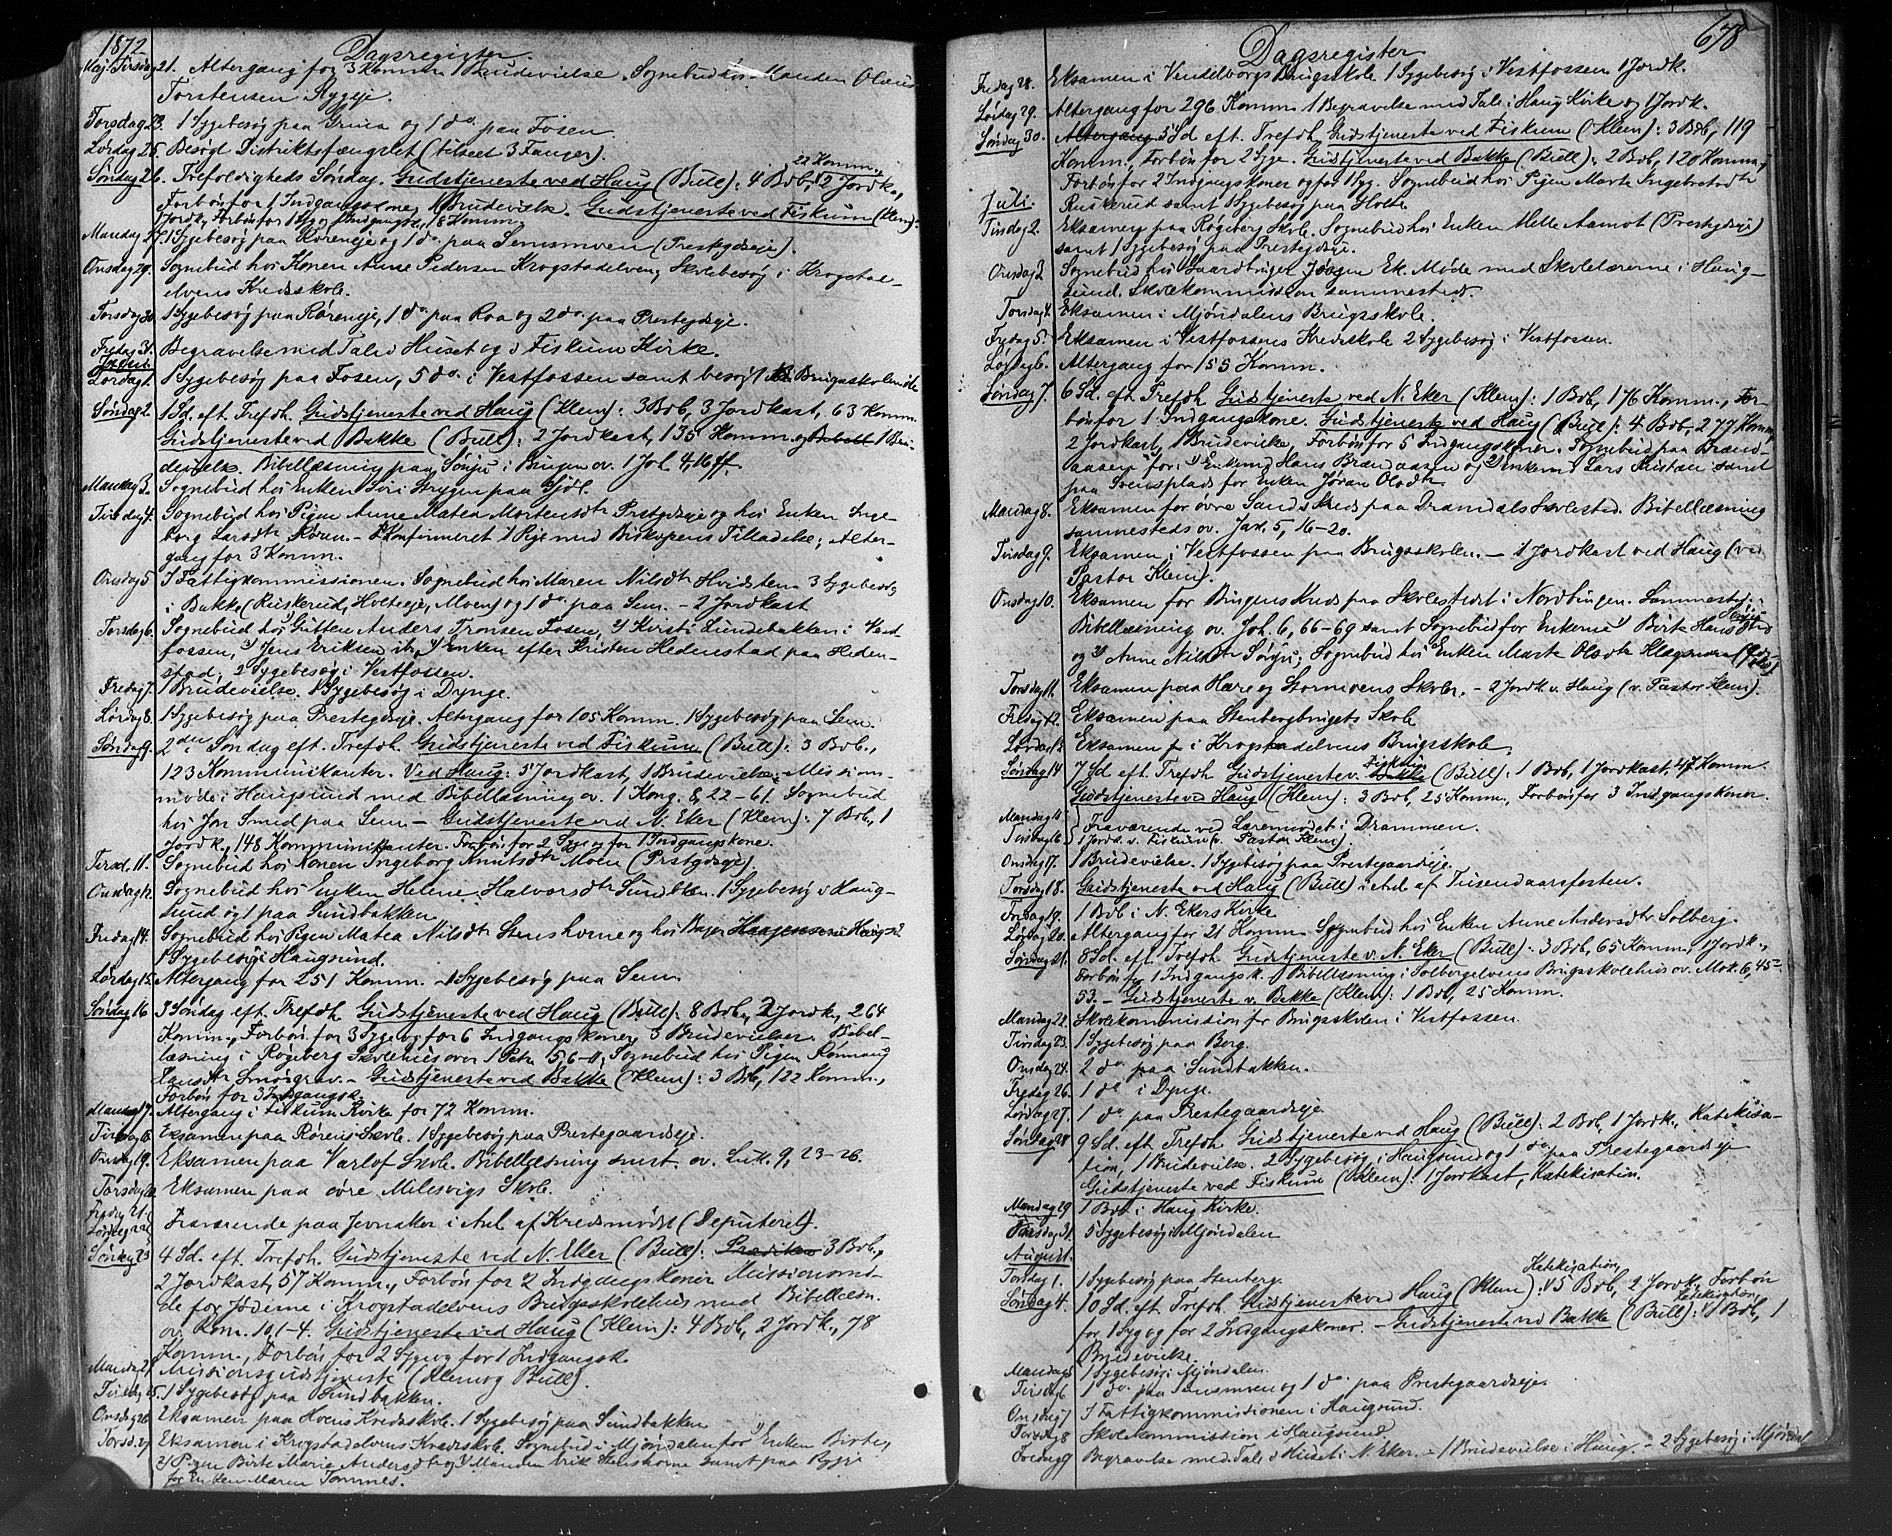 1872
Dagsregister
Maj. Tirsdag 21. Altergang for 3 Komm. 1 Brudevielse. Sognebud hos Manden Olaus
Torstensen Ryggeje.
Torsdag 23. 1 Sygebesøg paa Grina og 1 do paa Fosen.
Lørdag 25. Besøgt Distriktsfængslet (tilseet 3 Fanger).
22 Komm.,
Søndag 26. Trefoldigheds Søndag. Gudstjeneste ved Haug (Bull): 4 Bdb, 2 Jordk.,
Forbøn for 1 Indgangskone, 1 Brudevielse. Gudstjeneste ved Fiskum (Klem):
1 Jordk., Forbøn for 1 Syg og 1 Indgangsk., 8 Komm.
Mandag 27. 1 Sygebesøg paa Røreneje og 1 do paa Semsmoen (Prestegdseje).
Onsdag 29. Sognebud hos Konen Anne Pedersen Krogstadelven, Skolebesøg i Krogstad-
elvens Kredsskole.
Torsdag 30. 1 Sygebesøg paa Røreneje, 1 do paa Roa og 2 do paa Prestegdseje.
Fredag 31. Begravelse med Tale i Huset og i Fiskum Kirke.
Juni.
Lørdag 1. 1 Sygebesøg paa Fosen, 5 do i Vestfossen samt besøgt Brugsskolen
Søndag 2. 1 Sd. eft. Trefdh. Gudstjeneste ved Haug (Klem): 3 Bdb, 3 Jordkast, 63 Komm.
Gudstjeneste ved Bakke (Bull): 2 Jordkast, 135 Komm. og 1 Bru-
devielse. Bibellæsning paa Sønju i Bingen ov. 1 Joh. 4, 16 ff.
Mandag 3. Sognebud hos Enken Siri paa
Tirsdag 4. Sognebud hos Pigen Anne Matea Mortensdtr Prestegdseje og hos Enken Inge-
borg Larsdtr Røren. - Konfirmeret 1 Pige med Biskopens Tilladelse; Alter-
gang for 3 Komm.
Onsdag 5 I Fattigkommissionen. Sognebud hos Maren Nilsdtr Hvidsten 3 Sygebesøg
i Bakke (Ruskerud, Holteeje, Moen) og 1 do paa Sem. - 2 Jordkast
Torsdag 6. Sognebud hos Gutten Anders Tronsen Fosen, 2) Kirsti Lundebakken i Vest-
fossen, 3) Jens Eriksen ib., 4) Enken efter Kristen Hedenstad paa Heden-
stad, 2 Sygebesøg i Vestfossen.
Fredag 7. 1 Brudevielse. 1 Sygebesøg i Dynge.
Lørdag 8. 1 Sygebesøg paa Prestegdseje. Altergang for 105 Komm. 1 Sygebesøg paa Sem.
Søndag 9. 2den Søndag eft. Trefdh. Gudstjeneste ved Fiskum (Bull): 3 Bdb.,
123 Kommunikanter. Ved Haug: 5 Jordkast, 1 Brudevielse. Mission-
møde i Haugsund med Bibellæsning ov. 1 Kong. 8, 22-61. Sognebud
hos Jon Smed paa Sem. - Gudstjeneste ved N. Eker (Klem): 7 Bdb, 1
Jordk., 148 Kommunikanter. Forbøn for 2 Syge og for 1 Indgangskone.
Tirsd. 11. Sognebud hos Konen Ingeborg Knutsdtr Moen (Prstgdseje).
Onsdag 12. Sognebud hos Enken Helene Halvorsdtr Sundbkken. 1 Sygebesøg v. Haug-
sund og 1 paa Sundbakken
Fredag 14. Sognebud hos Pigen Matea Nilsdtr Stenshorne og hos
1 Sygebesøg i Haugsund.
Lørdag 15. Altergang for 251 Komm. - 1 Sygebesøg paa Sem.
Søndag 16 3 Søndag eft. Trefdh. Gudstjeneste ved Haug (Bull): 8 Bdb, 2 Jordk., 264
Komm., Forbøn for 3 Syge og for 6 Indgangskoner, 3 Brudevielser. Bibel-
læsning i Røgeberg Skolehus over 1 Petr. 5, 6-11, Sognebud hos Pigen Rønnaug
Hansdtr Smørgrav. - Gudstjeneste ved Bakke (Klem): 3 Bdb, 122 Komm.,
Forbøn for 3 Indgangsk.
Mandag 17. Altergang i Fiskum Kirke for 72 Komm.
Tirsdag 18. Eksamen paa Rørens Skole. 1 Sygebesøg paa Prestegaardseje.
Onsdag 19. Eksamen paa Varlof Skole. Bibellæsning smst. ov. Luk. 9, 23-26.
Torsdag 20. Eksamen paa øvre Milesvigs Skole.
Fredag 21.
Lørdag 22. Fraværende paa Jevnaker i Anl. af Kredsmødet (Deputeret).
Søndag 23 4 Sd. eft. Trefdh. Gudstjeneste ved N. Eker (Bull): 3 Bdb.,
2 Jordkast, 57 Komm., Forbøn for 2 Indgangskoner. Missionsmø-
de for Jøderne i Krogstadelvens Brugsskolehus med Bibellæsn.
ov. Rom. 10, 1-4. Gudstjeneste ved Haug (Klem): 4 Bdb, 2 Jordk., 78
Komm., Forbøn for 2 Syge og for 1 Indgangsk.
Mandag 24 Missionsgudstjeneste (Klem og Bull).
Tirsdag 25. 1 Sygebesøg paa Sundbakken.
Onsdag 26. Eksamen paa Hoens Kredsskole. 1 Sygebesøg paa Sundbakken
Torsd. 27 Eksamen i Krogstadelvens Kredsskole. Sognebud i Mjøndalen for 1) Enken Birte,
2) Pigen Birte Marie Andersd. og 3) Manden Erik Stenshorne samt paa Rygje
for Enken Maren Tommes.
678
Dagsregister
Fredag 28. Eksamen i Vendelborgs Brugsskole 1 Sygebesøg i Vestfossen 1 Jordk.
Lørdag 29. Altergang for 296 Komm. 1 Begravelse med Tale i Haug Kirke og 1 Jordk.
Søndag 30. Altergang 5 Sd. eft. Trefdh. Gudstjeneste ved Fiskum (Klem): 3 Bdb, 119
Komm., Forbøn for 2 Syge. Gudstjeneste ved Bakke (Bull): 2 Bdb, 120 Komm.,
Forbøn for 2 Indgangskoner og for 1 Syg. Sognebud hos Pigen Marte Ingebretsdtr
Ruskerud samt Sygebesøg paa Holte
Juli.
Tirsdag 2. Eksamen paa Røgeberg Skole. Sognebud hos Enken Helle Aamot (Prestegdseje)
samt 1 Sygebesøg paa Prestegdseje.
Onsdag 3. Sognebud hos Gaardbruger Jørgen Ek. Møde med Skolelærerne i Haug-
sund. Skolekommission sammesteds.
Torsdag 4. Eksamen i Mjøndalens Brugsskole.
Fredag 5. Eksamen i Vestfossens Kredsskole 2 Sygebesøg i Vestfossen.
Lørdag 6. Altergang for 155 Komm.
Søndag 7. 6 Sd. eft. Trefdh. Gudstjeneste ved N. Eker (Klem): 1 Bdb, 176 Komm., For-
bøn for 1 Indgangskone. Gudstjeneste ved Haug (Bull): 4 Bdb, 277 Komm,
2 Jordkast, 1 Brudevielse, Forbøn for 5 Indgangskoner. Sognebud paa Brænd-
aasen for: 1) Enkemd Hans Brændaasen og 2) Enkem. Lars Kristian samt
paa Svensplads for Enken Jøran Olsdtr
Mandag 8. Eksamen for øvre Sands Kreds paa Dramdals Skolested. Bibellæsning
sammesteds ov. Jak. 5, 16-20.
Tirsdag 9. Eksamen i Vestfossen paa Brugsskolen. - 1 Jordkast ved Haug (ved
Pastor Klem).
Onsdag 10. Eksamen for Bingens Kreds paa Skolestedet i Nordbingen. Sammesteds
Bibellæsning ov. Joh. 6, 66-69 samt Sognebud for Enkerne 1) Birte Hansdtr
og 2) Anne Nilsdtr Sønju; Sognebud hos Enken Marte Olsdtr
Torsdag 11. Eksamen paa Hære og Stormoens Skoler. - 2 Jordk. v. Haug (v. Pastor Klem).
Fredag 12. Eksamen paa Stenbergbrugets Skole
Lørdag 13 Eksamen i Krogstadelvens Brugsskole
Fiskum
Søndag 14 7 Sd eft. Trefdh. Gudstjeneste v. Bakke (Bull): 1 Bdb, 1 Jordkast, 47 Komm.
Gudstjeneste ved Haug (Klem): 3 Bdb, 25 Komm., Forbøn for 3 Indgangskoner.
Mandag 15
Tirsdag 16 } Fraværende ved Læremødet i Drammen.
1 Jordk. v. Fiskum (v. Pastor Klem)
Onsdag 17. 1 Brudevielse. 1 Sygebesøg paa Prestegaardseje.
Torsdag 18. Gudstjeneste ved Haug (Bull) i Anl. af Tusendaarsfesten.
Fredag 19. 1 Bdb i N. Ekers Kirke
Lørdag 20. Altergang for 21 Komm. Sognebud hos Enken Anne Andersdtr Solberg.
Søndag 21. 8 Sd. eft. Trefdh. Gudstjeneste v. N. Eker (Bull): 3 Bdb, 65 Komm., 1 Jordk.,
Forbøn for 1 Indgangsk. Bibellæsning i Solbergelvens Brugsskolehus ov. Mrk. 6, 45-
53. - Gudstjeneste v. Bakke (Klem): 1 Bdb, 25 Komm.
Mandag 22. Skolekommission for Brugsskolen i Vestfossen.
Tirsdag 23. 1 Sygebesøg paa Berg.
Onsdag 24. 2 do paa Sundbakken.
Fredag 26. 1 do i Dynge.
Lørdag 27. 1 do paa Prestegaardseje
Søndag 28 9 Sd. eft. Trefdh. Gudstjeneste ved Haug (Bull): 2 Bdb, 1 Jordk., Katekisa-
tion, 1 Brudevielse. 2 Sygebesøg i Haugsund og 1 do paa Prestegaardseje
Gudstjeneste ved Fiskum (Klem): 1 Jordkast, Katekisation.
Mandag 29 1 Bdb i Haug Kirke.
Onsdag 31. 5 Sygebesøg i Mjøndalen
August.
Torsdag 1. 1 Sygebesøg paa Stenberg.
Katekisation,
Søndag 4. 10 Sd. eft. Trefdh. Gudstjeneste ved Haug (Klem): 5 Bdb, 2 Jordk., Forbøn
Katekisation,
for 1 Syg og for 2 Indgangskoner. - Gudstjeneste ved Bakke (Bull): 1 Bdb, 1
Brudevielse.
Mandag 5 1 Sygebesøg i Mjøndalen.
Tirsdag 6 1 do paa Semsmoen og 1 do paa Prestegaardseje.
Onsdag 7 I Fattigkommissionen i Haugsund.
Torsdag 8 Skolekommission i Haugsund.
Fredag 9 Begravelse med Tale i Huset i N. Eker. - 1 Brudevielse i Haug. - 2 Sygebesøg i Mjøndal